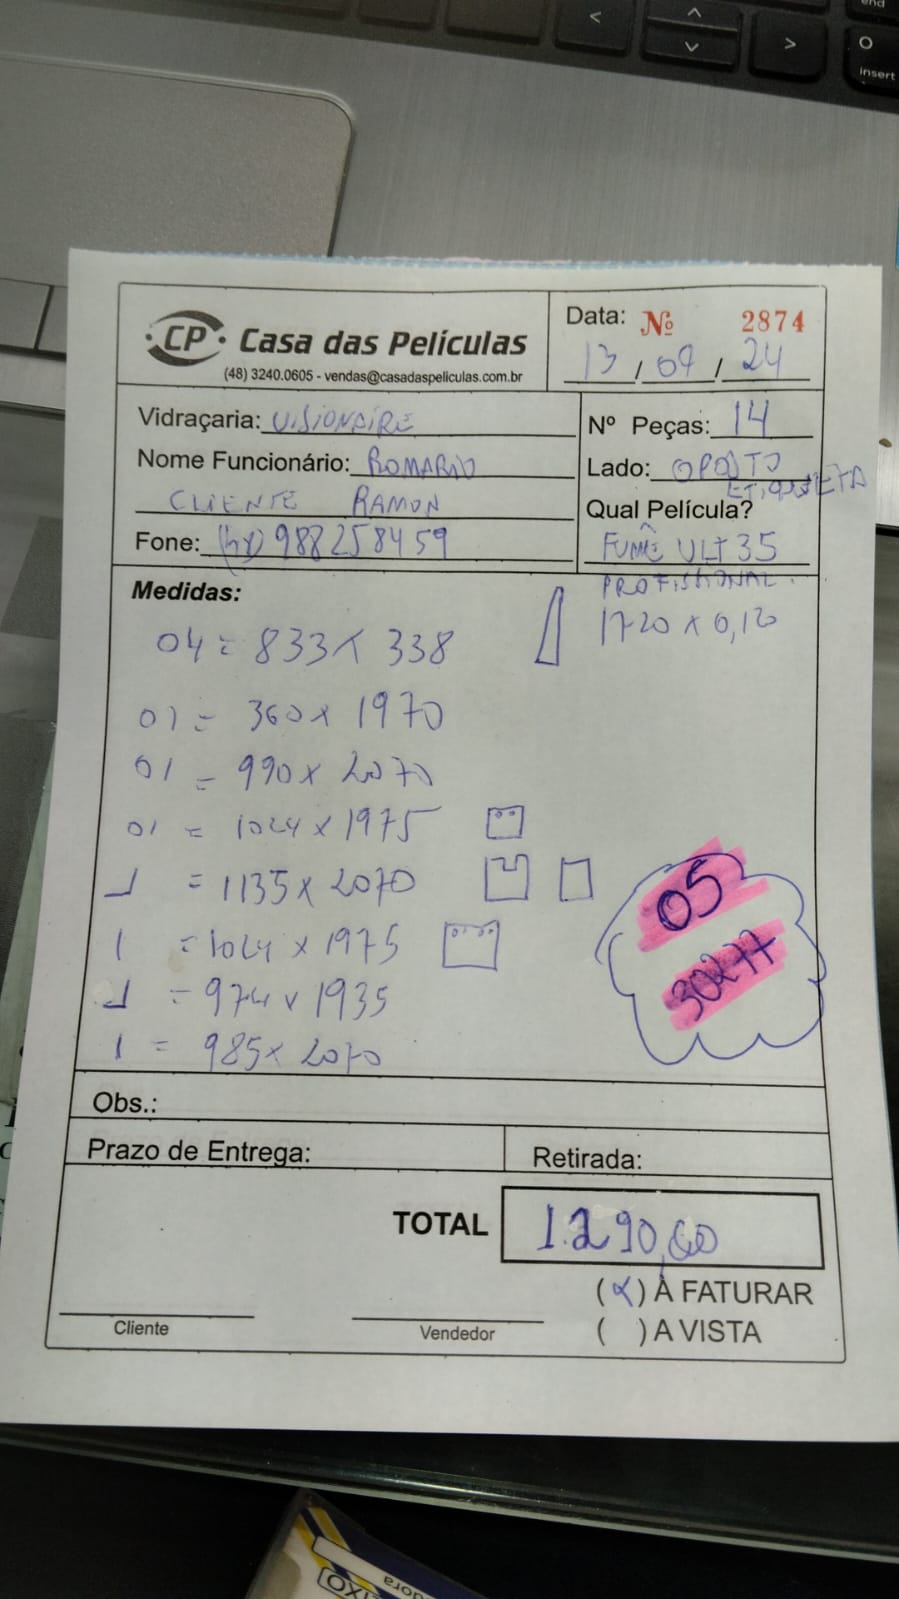 end
insert
CP Casa das Películas
(48) 3240.0605 - vendas@casadaspeliculas.com.br
Data: Nº 2874
13 / 09 / 24
Vidraçaria: VISIONAIRE
Nº Peças: 14
Nome Funcionário: ROMARIO
Lado: OPOSTO
ETIQUETA
CLIENTE RAMON
Qual Película?
Fone: 988258459
FUMÊ ULT 35
PROFISSIONAL
Medidas:
1720 x 0,120
04 = 833 x 338
01 = 360 x 1970
01 = 990 x 2070
01 = 1024 x 1975
1 = 1135 x 2070
1 = 1024 x 1975
1 = 974 x 1935
1 = 985 x 2070
05
30277
Obs.:
Prazo de Entrega:
Retirada:
TOTAL 1.290,60
(x) À FATURAR
( ) A VISTA
Cliente
Vendedor